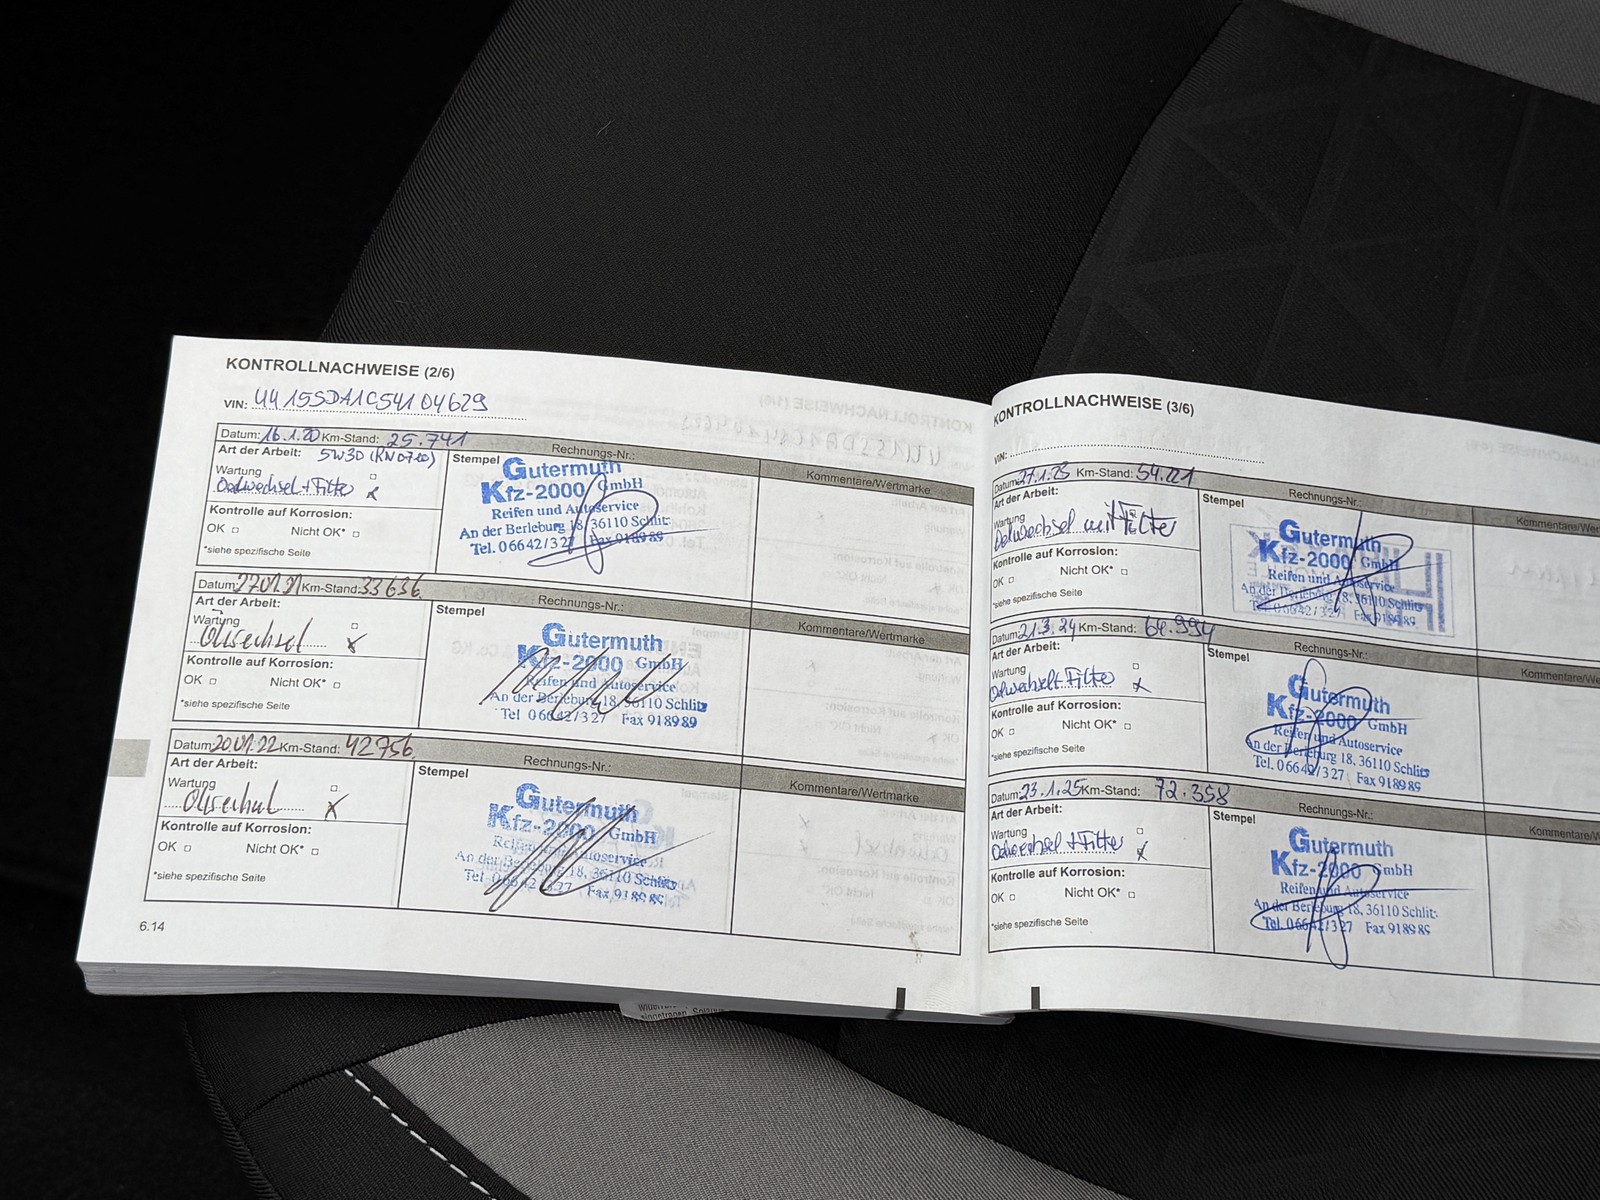 KONTROLLNACHWEISE (2/6)
VIN: UU15SDA1C54104629
Datum: 16.1.20 Km-Stand: 25.741
Art der Arbeit: 5W30 (RN0720)
Wartung
Oelwechsel + Filter x
Kontrolle auf Korrosion:
OK Nicht OK*
*siehe spezifische Seite
Stempel
Rechnungs-Nr.:
Kommentare/Wertmarke
Gutermuth
Kfz-2000 GmbH
Reifen und Autoservice
An der Berleburg 18, 36110 Schlitz
Tel. 06642/327 Fax 918989
Datum: 27.01.21 Km-Stand: 33636
Art der Arbeit:
Wartung
Ölwechsel x
Kontrolle auf Korrosion:
OK Nicht OK*
*siehe spezifische Seite
Stempel
Rechnungs-Nr.:
Kommentare/Wertmarke
Gutermuth
Kfz-2000 GmbH
Reifen und Autoservice
An der Berleburg 18, 36110 Schlitz
Tel 06642/327 Fax 918989
Datum: 20.01.22 Km-Stand: 42756
Art der Arbeit:
Wartung
Ölwechsel x
Kontrolle auf Korrosion:
OK Nicht OK*
*siehe spezifische Seite
Stempel
Rechnungs-Nr.:
Kommentare/Wertmarke
Gutermuth
Kfz-2000 GmbH
Reifen und Autoservice
An der Berleburg 18, 36110 Schlitz
Tel 06642/327 Fax 918989
6.14
KONTROLLNACHWEISE (3/6)
VIN:
Datum: 27.1.23 Km-Stand: 54.221
Art der Arbeit:
Wartung
Oelwechsel mit Filter
Kontrolle auf Korrosion:
OK Nicht OK*
*siehe spezifische Seite
Stempel
Rechnungs-Nr.:
Gutermuth
Kfz-2000 GmbH
Reifen und Autoservice
An der Berleburg 18, 36110 Schlitz
Tel. 06642/327 Fax 918989
Datum: 21.3.24 Km-Stand: 64.994
Art der Arbeit:
Wartung
Oelwechsel + Filter x
Kontrolle auf Korrosion:
OK Nicht OK*
*siehe spezifische Seite
Stempel
Rechnungs-Nr.:
Gutermuth
Kfz-2000 GmbH
Reifen und Autoservice
An der Berleburg 18, 36110 Schlitz
Tel. 06642/327 Fax 918989
Datum: 23.1.25 Km-Stand: 72.358
Art der Arbeit:
Wartung
Oelwechsel + Filter x
Kontrolle auf Korrosion:
OK Nicht OK*
*siehe spezifische Seite
Stempel
Rechnungs-Nr.:
Gutermuth
Kfz-2000 GmbH
Reifen und Autoservice
An der Berleburg 18, 36110 Schlitz
Tel. 06642/327 Fax 918989